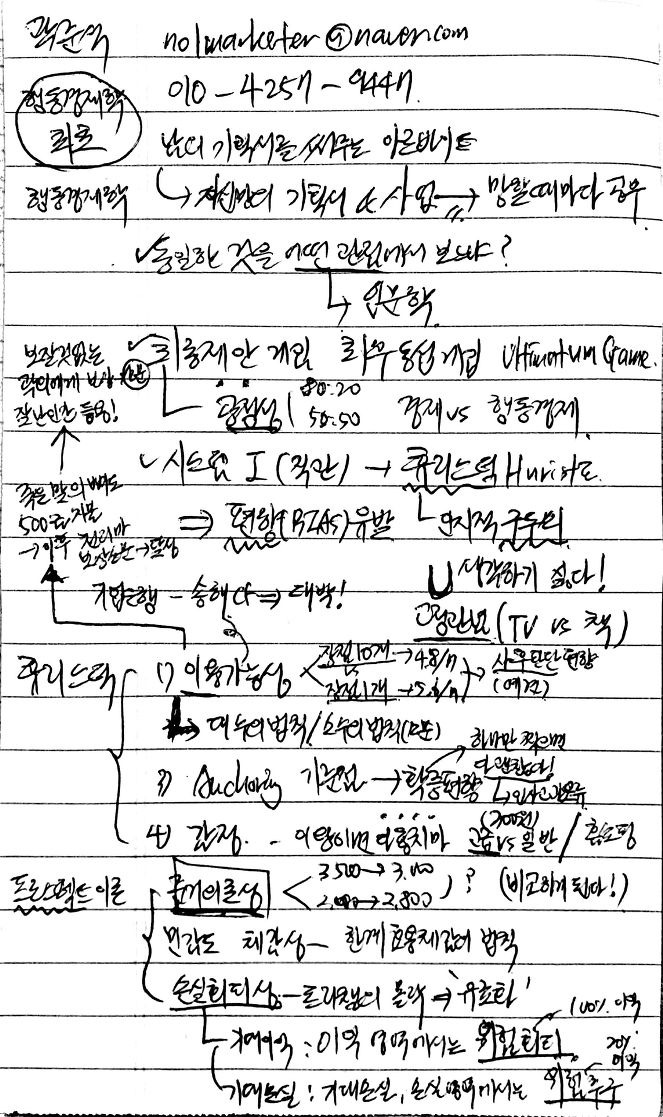 곽준식 no1marketer@naver.com
행동경제학
010-4257-9447
남의 기획서를 써주는 아르바이트
행동경제학 → 자신만의 기획서 & 사업 → 망할 때마다 공부
✓동일한 것을 어떤 관점에서 보느냐?
→ 인문학
보잘것없는
✓최후제안게임 최후통첩게임 Ultimatum Game.
공정성 80:20
50:50
경제 vs 행동경제
✓시스템 I (직관) → 휴리스틱
⇒ 편향(BIAs)유발
인지적 구두쇠
죽은 말의 뼈도
500금 지불
→ 이후 천리마
생각하기 싫다!
기업은행 - 송해 CF ⇒ 대박!
고정관념 (TV vs 책)
휴리스틱
1) 이용가능성
장점10개 → 4.8/7
장점1개 → 5.8/7
사후판단편향
대수의법칙/소수의법칙
3) 기준점 → 확증편향
하나만 찍으면
다 괜찮다!
4) 감정 - 이왕이면 다홍치마
고급 vs 일반
프로스펙트이론
준거의존성
3,500 → 3,000
2,000 → 2,800
? (비교하게된다!)
민감도 체감성 - 한계효용체감의 법칙
손실회피성 - 트리챔의 몰락 ⇒ '유효타'
100% 이익
기대이익 : 이익 영역에서는 위험회피
20%
이익
기대손실 : 기대손실, 손실영역에서는 위험추구